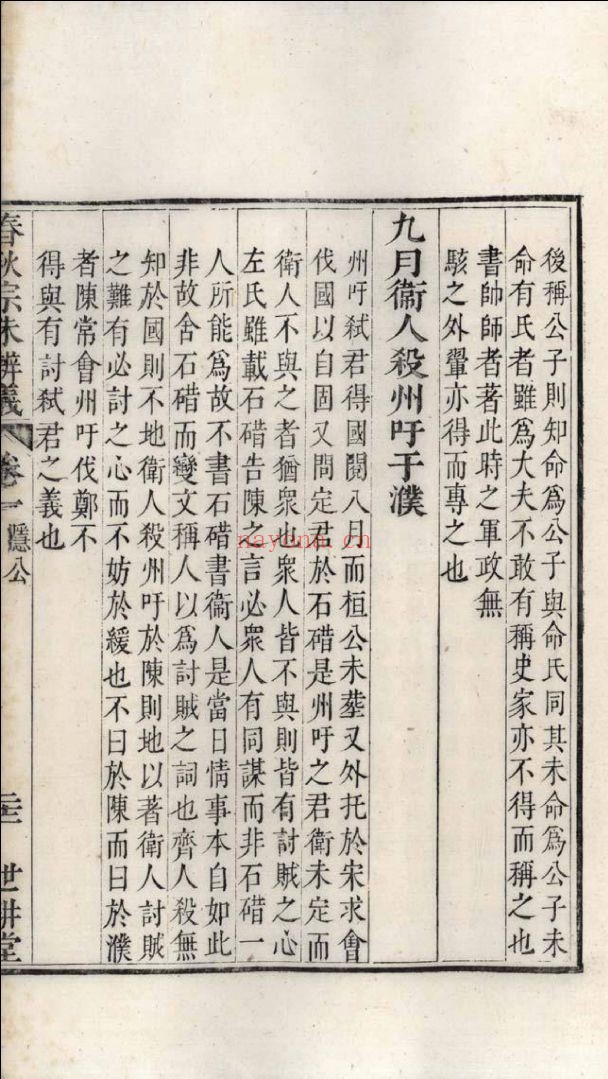 後稱公子則知命爲公子與命氏同其未命爲公子未
命有氏者雖爲大夫不敢有稱史家亦不得而稱之也
書帥師者著此時之軍政無
駭之外翬亦得而專之也
九月衞人殺州吁于濮
州吁弑君得國閱八月而桓公未葬又外托於宋求會
伐國以自固又問定君於石碏是州吁之君衞未定而
衞人不與之者猶衆也衆人皆不與則皆有討賊之心
左氏雖載石碏告陳之言必衆人有同謀而非石碏一
人所能爲故不書石碏書衞人是當日情事本自如此
非故舍石碏而變文稱人以爲討賊之詞也齊人殺無
知於國則不地衞人殺州吁於陳則地以著衞人討賊
之難有必討之心而不妨於緩也不曰於陳而曰於濮
者陳常會州吁伐鄭不
得與有討弑君之義也
春秋宗朱辨義 卷一 隱公 二十三 世耕堂
nayona.cn